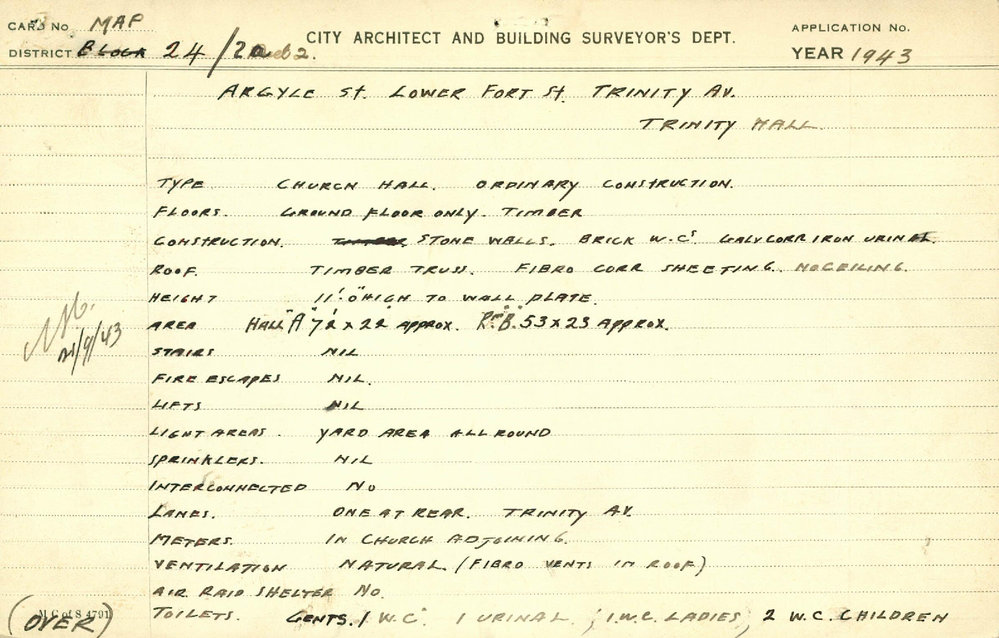 CARD No. MAP
CITY ARCHITECT AND BUILDING SURVEYOR'S DEPT.
APPLICATION No.
DISTRICT BLOCK 24/20
YEAR 1943
ARGYLE St. LOWER FORT St. TRINITY AV.
TRINITY HALL
TYPE CHURCH HALL. ORDINARY CONSTRUCTION.
FLOORS. GROUND FLOOR ONLY. TIMBER
CONSTRUCTION. STONE WALLS. BRICK W.Cs GALV CORR IRON URINAL.
ROOF. TIMBER TRUSS. FIBRO CORR SHEETING. NO CEILING.
HEIGHT 11'.0" HIGH TO WALL PLATE.
AREA HALL "A" 72' x 22' APPROX. Rm "B". 53 x 23 APPROX.
21/9/43
STAIRS NIL
FIRE ESCAPES NIL.
LIFTS NIL
LIGHT AREAS. YARD AREA ALL ROUND
SPRINKLERS. NIL
INTERCONNECTED NO
LANES. ONE AT REAR. TRINITY AV.
METERS. IN CHURCH ADJOINING.
VENTILATION NATURAL (FIBRO VENTS IN ROOF)
AIR RAID SHELTER NO.
M C of S 4791
(OVER)
TOILETS. GENTS. 1 W.C. 1 URINAL; 1.W.C. LADIES; 2 W.C. CHILDREN